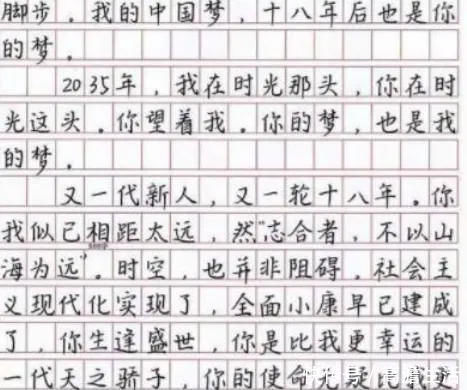 脚步。我的中国梦，十八年后也是你
的梦。
2035年，我在时光那头，你在时
光这头。你望着我。你的梦，也是我
的梦。
又一代新人，又一轮十八年。你
我似已相距太远，然“志合者，不以山
海为远”。时空，也并非阻碍，社会主
义现代化实现了，全面小康早已建成
了，你生逢盛世，你是比我更幸运的
一代天之骄子，你的使命